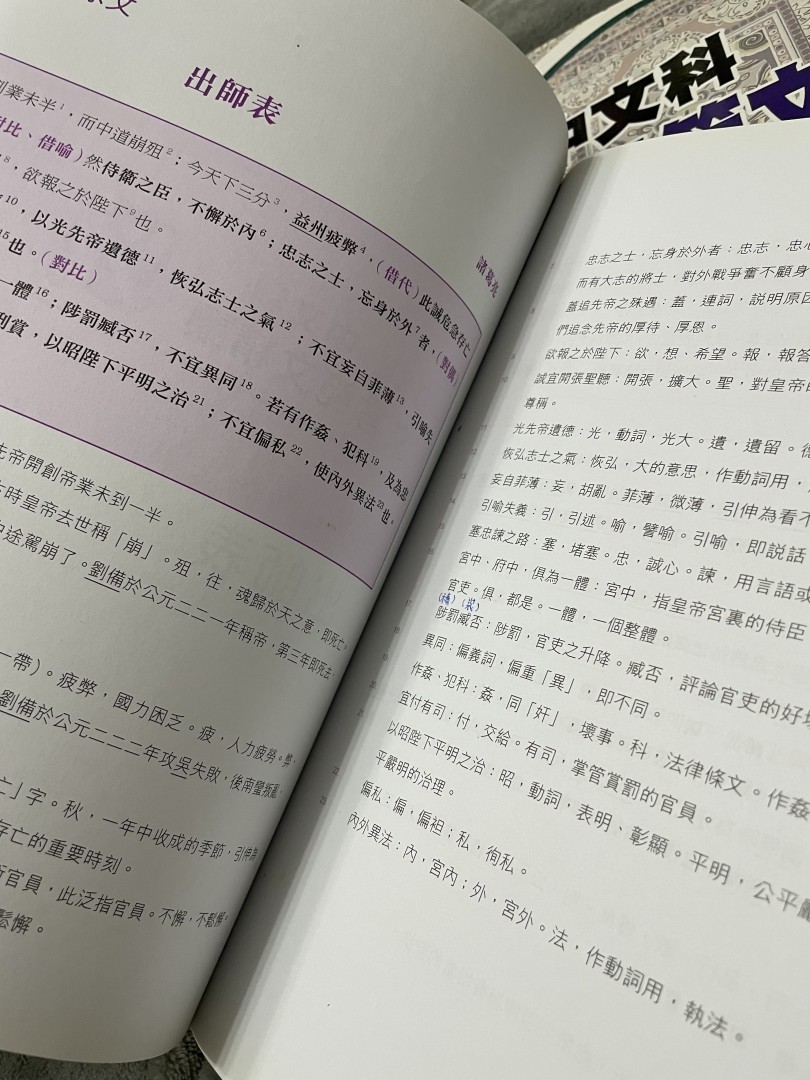 出師表
諸葛亮
創業未半¹，而中道崩殂²；今天下三分³，益州疲弊⁴，(借代)此誠危急存亡
對比、借喻)然侍衛之臣，不懈於內⁶；忠志之士，忘身於外⁷者，(對偶)
⁸，欲報之於陛下⁹也。
¹⁰，以光先帝遺德¹¹，恢弘志士之氣¹²；不宜妄自菲薄¹³，引喻失
¹⁵也。(對比)
一體¹⁶；陟罰臧否¹⁷，不宜異同¹⁸。若有作姦、犯科¹⁹，及為忠
刑賞，以昭陛下平明之治²¹；不宜偏私²²，使內外異法²³也。
先帝開創帝業未到一半。
時皇帝去世稱「崩」。殂，往，魂歸於天之意，即死亡。
中途駕崩了。劉備於公元二二一年稱帝，第三年即死去。
一帶)。疲弊，國力困乏。疲，人力疲勞。弊，
劉備於公元二二二年攻吳失敗，後南蠻叛亂，
亡」字。秋，一年中收成的季節，引伸為
存亡的重要時刻。
官員，此泛指官員。不懈，不鬆懈。
鬆懈。
忠志之士，忘身於外者：忠志，忠心
而有大志的將士，對外戰爭奮不顧身
蓋追先帝之殊遇：蓋，連詞，說明原因
們追念先帝的厚待、厚恩。
欲報之於陛下：欲，想、希望。報，報答
誠宜開張聖聽：開張，擴大。聖，對皇帝的
尊稱。
光先帝遺德：光，動詞，光大。遺，遺留。德
恢弘志士之氣：恢弘，大的意思，作動詞用，
妄自菲薄：妄，胡亂。菲薄，微薄，引伸為看不
引喻失義：引，引述。喻，譬喻。引喻，即說話
塞忠諫之路：塞，堵塞。忠，誠心。諫，用言語或
宮中、府中，俱為一體：宮中，指皇帝宮裏的侍臣
官吏。俱，都是。一體，一個整體。
陟罰臧否：陟罰，官吏之升降。臧否，評論官吏的好壞
異同：偏義詞，偏重「異」，即不同。
作姦、犯科：姦，同「奸」，壞事。科，法律條文。作姦
宜付有司：付，交給。有司，掌管賞罰的官員。
以昭陛下平明之治：昭，動詞，表明、彰顯。平明，公平嚴
平嚴明的治理。
偏私：偏，偏袒；私，徇私。
內外異法：內，宮內；外，宮外。法，作動詞用，執法。